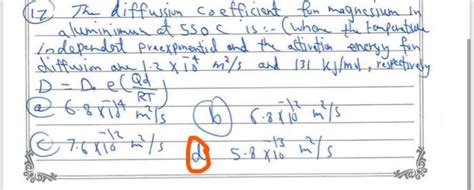 (17 The diffusion coefficient for magnesium in
aluminimum at 550 C is :- (when the temperature
independent preexponential and the activation energy for
diffusion are 1.2 x 10⁻⁴ m²/s and 131 kJ/mol, respectively
D = D₀ e (Qd/RT)
ⓐ 6.8 x 10⁻¹⁴ m²/s ⓑ 6.8 x 10⁻¹² m²/s
ⓒ 7.6 x 10⁻¹² m²/s ⓓ 5.8 x 10⁻¹³ m²/s